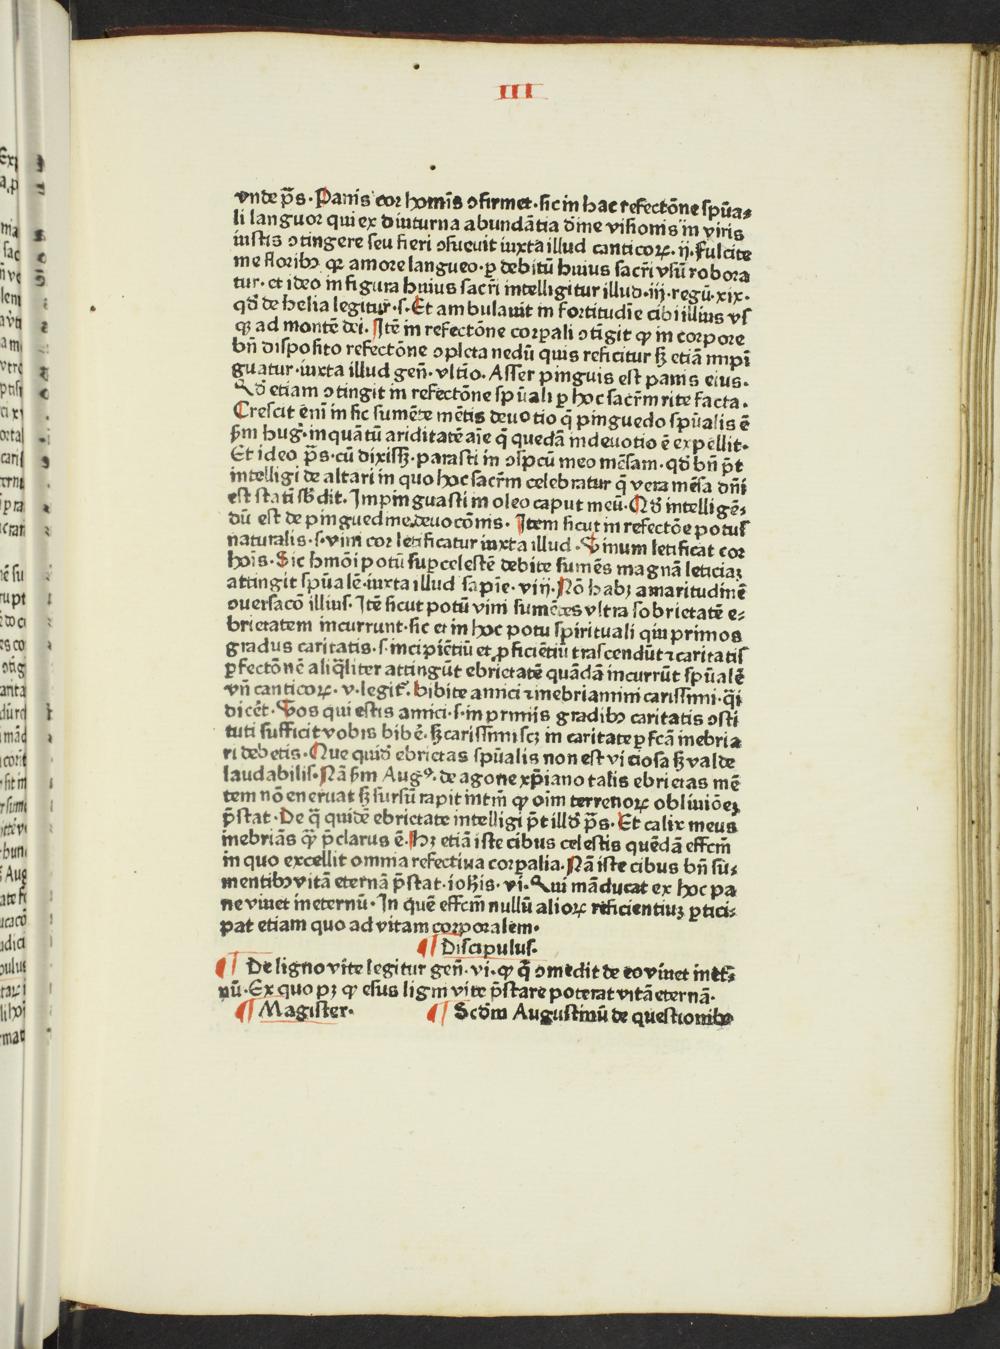 III
vnde ṗs · Panis cor homīs ꝯfirmet · sic in hac refectōne spūa⸗
li languor qui ex diuturna abundātia diīne visionis in viris
iustis ꝯtingere seu fieri ꝯsueuit iuxta illud canticoꝝ · ij · fulcite
me floribꝫ qꝛ amore langueo · ꝑ debitū huius sacrī vsū robora
tur · et ideo in figura huius sacrī intelligitur illud · iij · regū · xix ·
qḋ de helia legitur · s · Et ambulauit in fortitudīe cibi illius vs
qꝫ ad montē dei · Itē in refectōne corꝑali ꝯtīgit ꝙ in corpore
bn̄ disposito refectōne ꝯpleta nedū quis reficitur sꝫ etiā inpī
guatur · iuxta illud gen̄ · vltīo · Asser pinguis est panis eius ·
Qḋ etiam ꝯtingit in refectōne spūali ꝑ hoc sacr̄m rite facta ·
Crescit enī in sic sumēte mētis deuotio q̄ pinguedo spūalis ē
ẜm hug̊ · inquātū ariditatē aīe q̄ quedā indeuotio ē expellit ·
Et ideo ṗs · cū dixissꝫ · parasti in ꝯspcū meo mēsam · qḋ bn̄ p̄t
intelligi de altari in quo hoc sacr̄m celebratur q̄ vera mēsa dn̄i
est statī sb̄dit · Impinguasti in oleo caput meū · Qḋ intelligē⸗
dū est de pinguedine deuocōnis · Item sicut in refectōe potus
naturalis · s · vini cor letificatur iuxta illud · Vinum letificat cor
hoīs · Sic hmōi potū suꝑcelestē debite sumēs magnā leticiaꝫ
attingit spūalē · iuxta illud sapīe · viij · Nō habꝫ amaritudinē
ꝯuersacō illius · Itē sicut potū vini sumētes vltra sobrietatē e⸗
brietatem incurrunt · sic et in hoc potu spirituali qui primos
gradus caritatis · s · incipiētiū et ꝓficiētiū trāscendūt ⁊ caritatis
ꝑfectōnē aliq̄liter attingūt ebrietatē quādā incurrūt spūalē
vn̄ canticoꝝ · v · legit᷑ · bibite amici ⁊ inebriamini carissimi · q̄i
dicēt · Vos qui estis amici · s · in primis gradibꝫ caritatis ꝯsti
tuti sufficit vobis bibē · sꝫ carissimi scꝫ in caritate ꝑfcā inebria
ri debetis · Que quidē ebrietas spūalis non est viciosa sꝫ valde
laudabilis · Nā ẜm Aug⁹ · de agone xp̄iano talis ebrietas mē
tem nō eneruat sꝫ sursū rapit intīn ꝙ oīm terrenoꝝ obliuiōeꝫ
p̄stat · De q̄ quidē ebrietate intelligi p̄t illḋ ṗs · Et calix meus
inebriās ꝙ p̄clarus ē · Hꝫ etiā iste cibus celestis quēdā effcm̄
in quo excellit omnia refectiua corꝑalia · Nā iste cibus bn̄ su⸗
mentibꝫ vitā eternā p̄stat · iohīs · vi · Qui māducat ex hoc pa
ne viuet in eternū · In quē effcm̄ nullū alioꝝ reficientiuꝫ ꝑtici⸗
pat etiam quo ad vitam corporalem ·
¶ Discipulus ·
¶ De ligno vite legitur gen̄ · vi · ꝙ q̄ ꝯmedit de eo viuet in et̄⸗
nū · Ex quo pꝫ ꝙ esus ligni vite p̄stare poterat vitā eternā ·
¶ Magister · ¶ Scḋm Augustinū de questionibꝫ